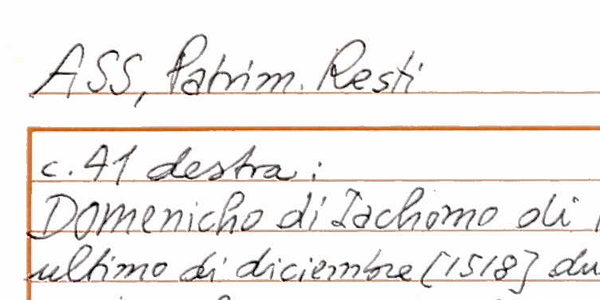 ASS, Patrim. Resti
c. 41 destra:
Domenicho di Iachomo di
ultimo di diciembre [1518] du